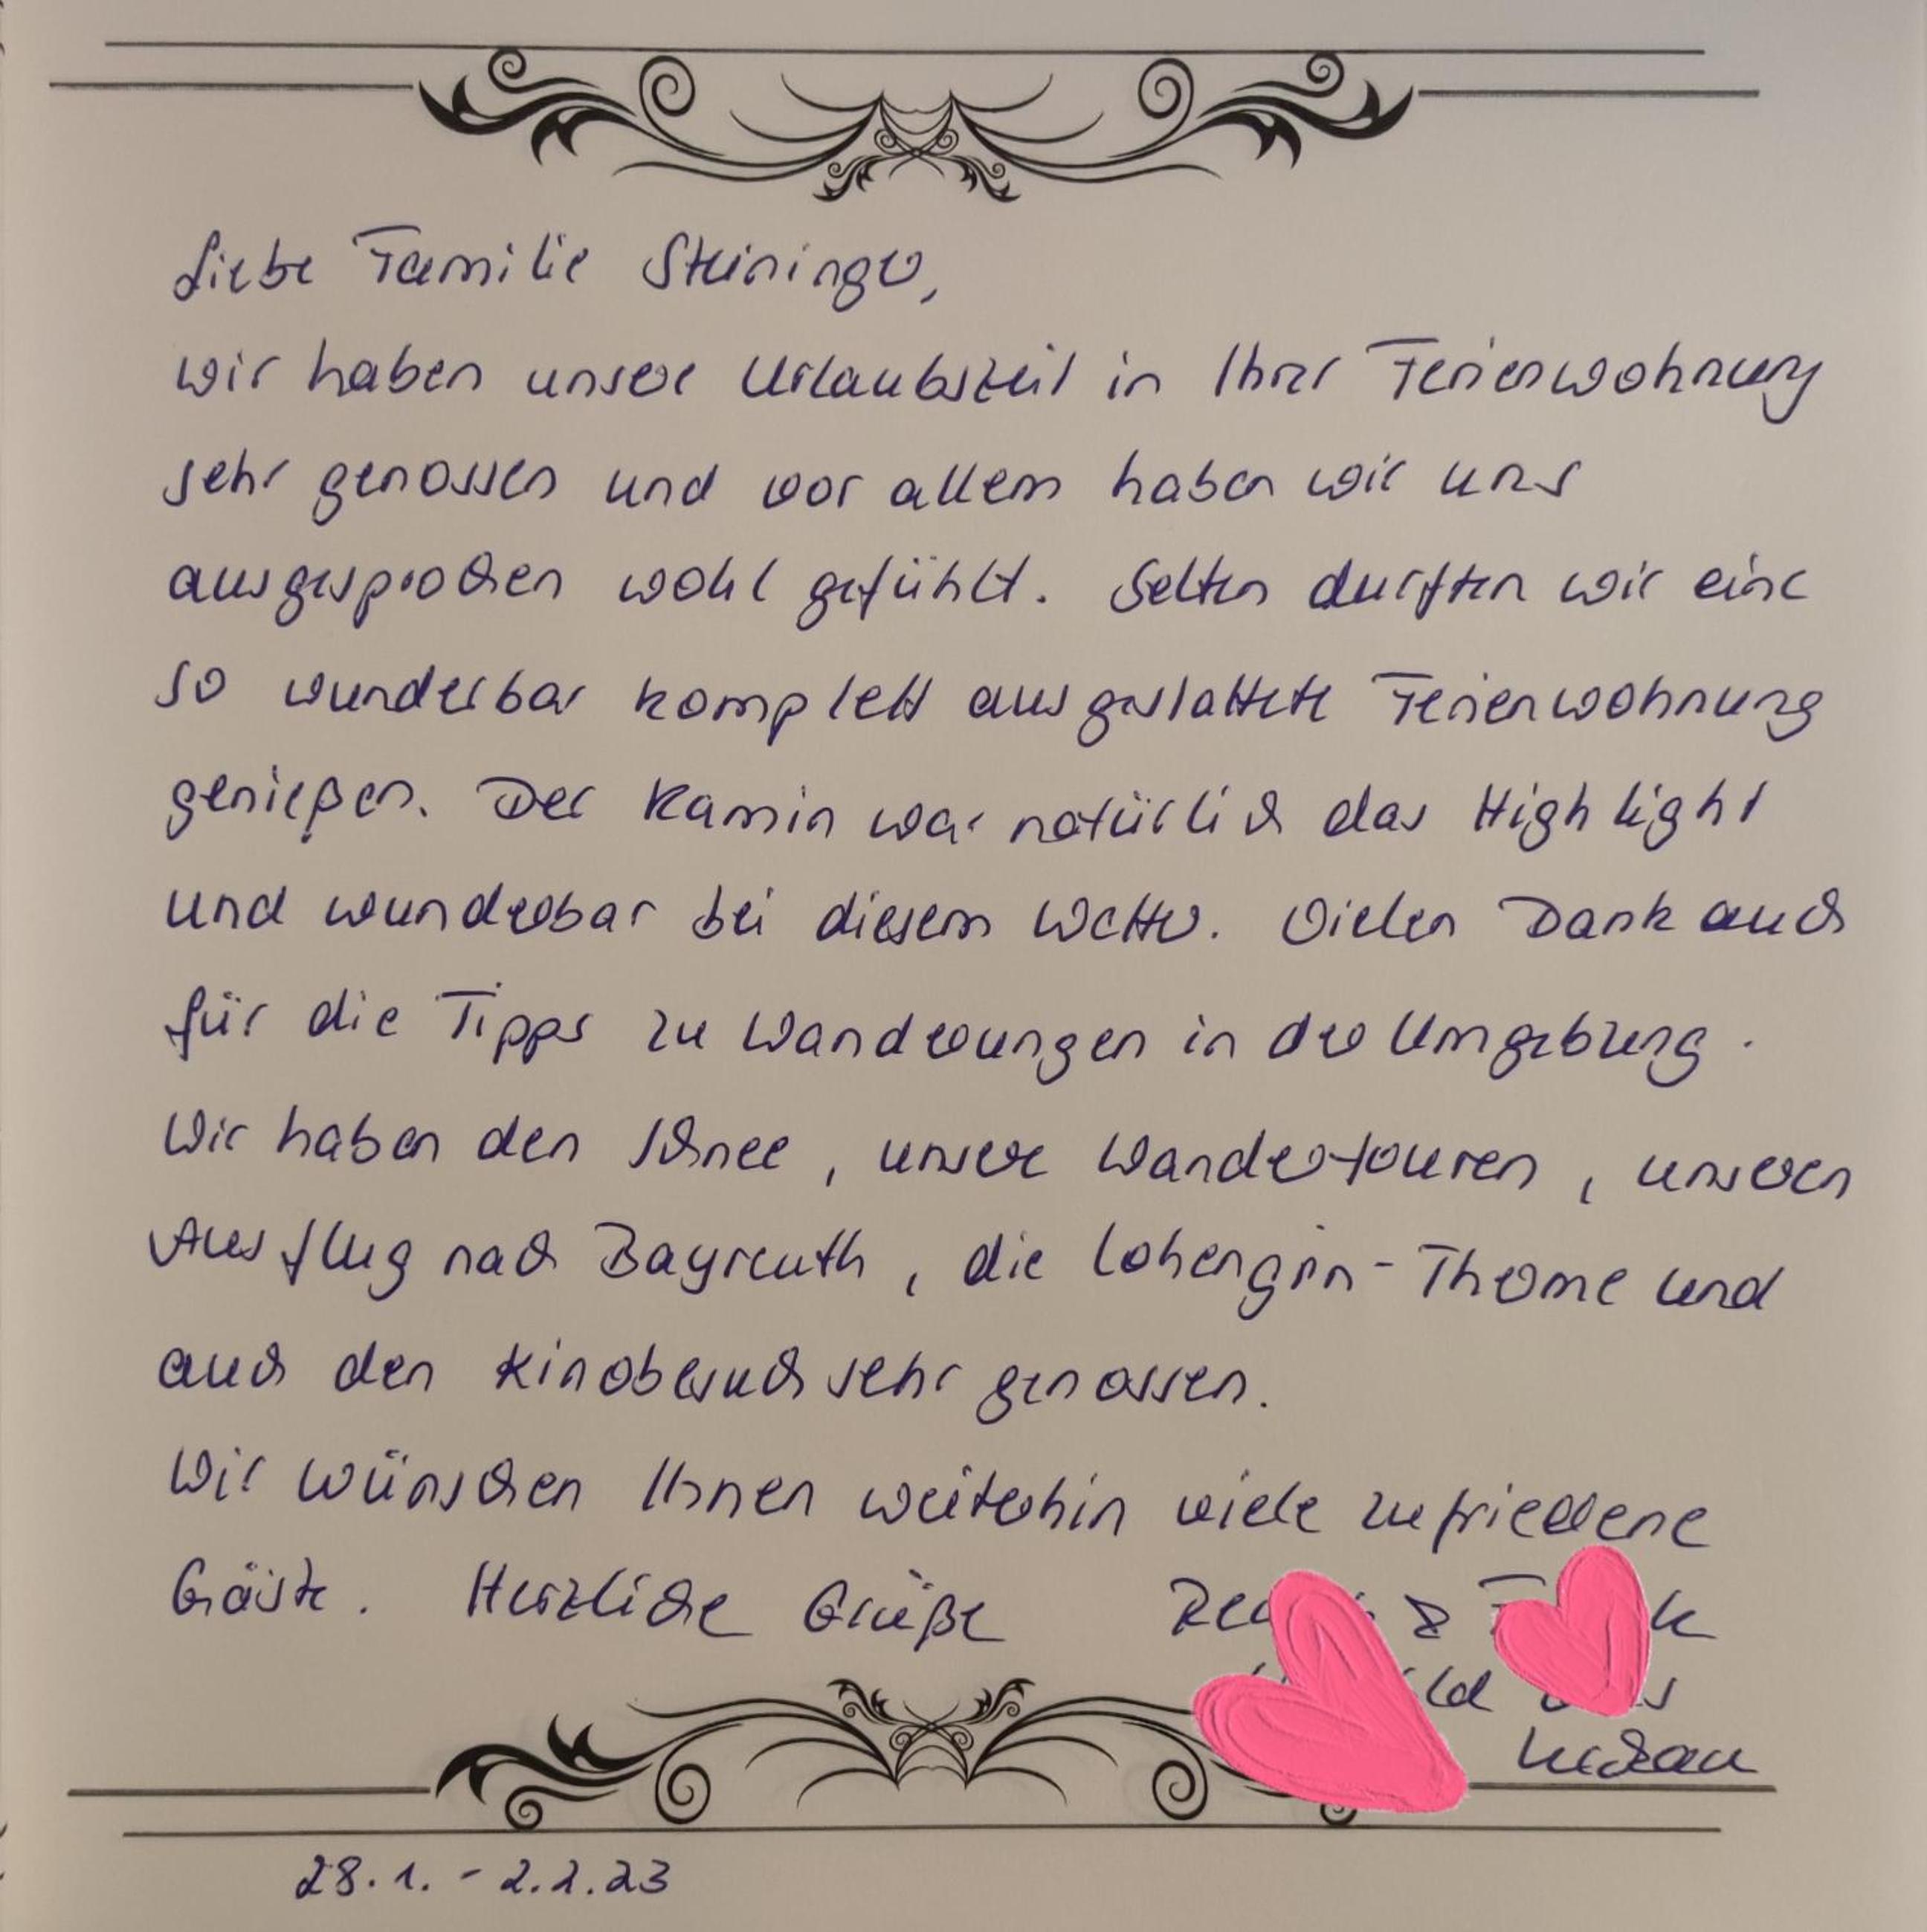 Liebe Familie Steininger,
wir haben unsere Urlaubszeit in Ihrer Ferienwohnung
sehr genossen und vor allem haben wir uns
ausgesprochen wohl gefühlt. Selten durften wir eine
so wunderbar komplett ausgestattete Ferienwohnung
genießen. Der Kamin war natürlich das Highlight
und wunderbar bei diesem Wetter. Vielen Dank auch
für die Tipps zu Wanderungen in der Umgebung.
Wir haben den Schnee, unsere Wandertouren, unseren
Ausflug nach Bayreuth, die Lohengrin-Therme und
auch den Kinobesuch sehr genossen.
Wir wünschen Ihnen weiterhin viele zufriedene
Gäste. Herzliche Grüße &
28.1. - 2.2.23